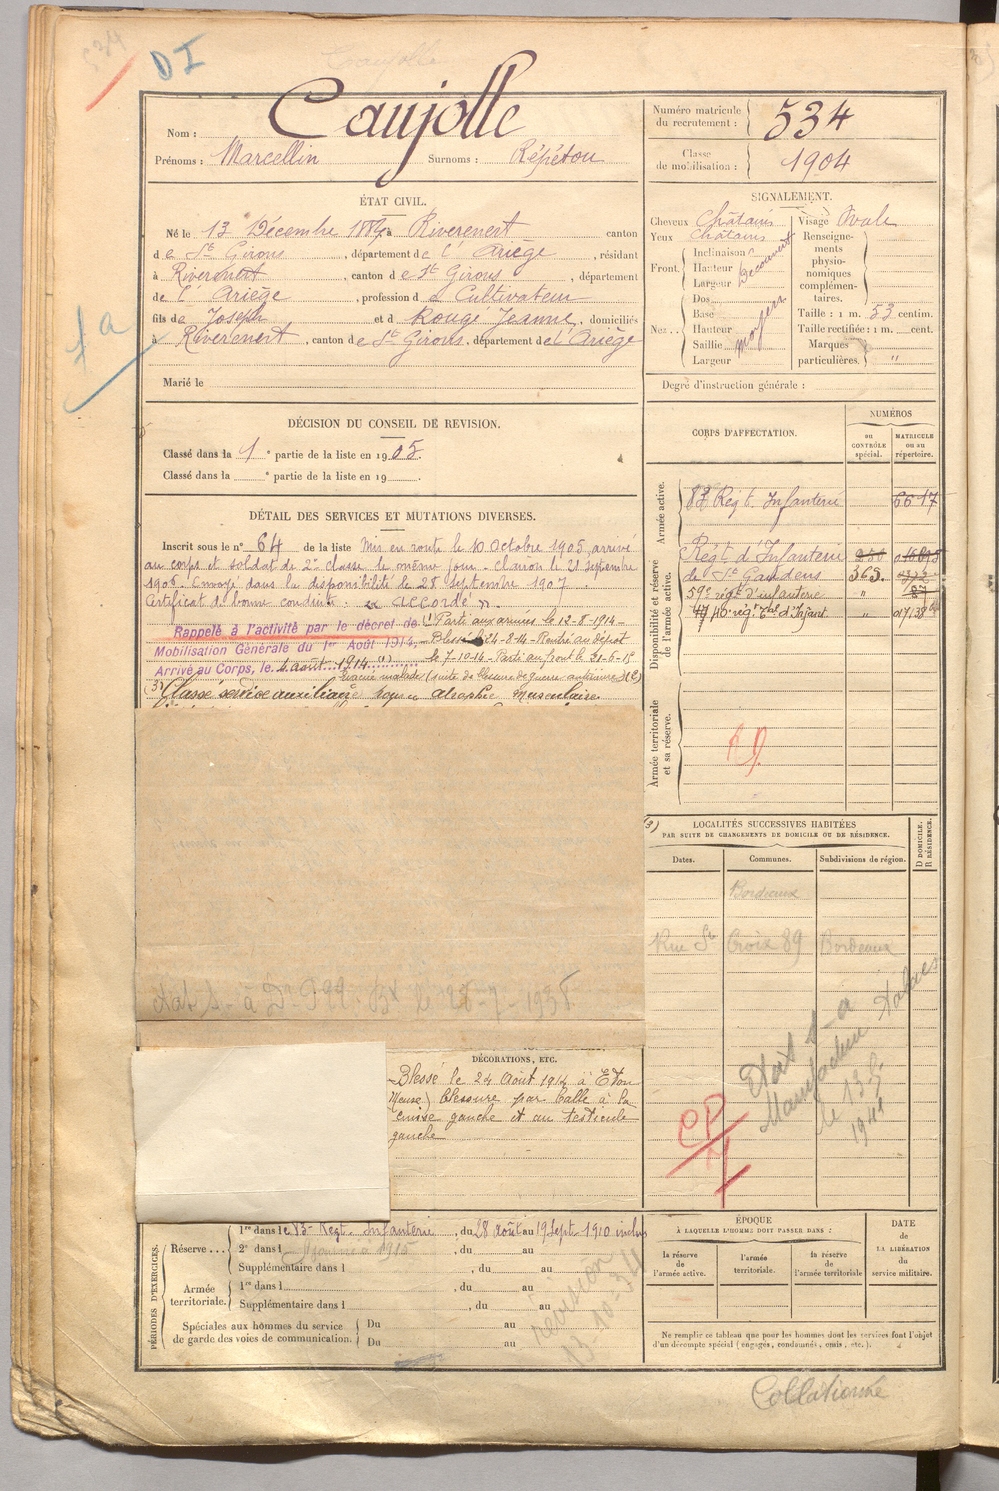 534
DI
Caujolle
Nom :
Prénoms : Marcellin Surnoms : Répétou
Numéro matricule du recrutement : 534
Classe de mobilisation : 1904
ÉTAT CIVIL.
Né le 13 Décembre 1884, à Riverenert canton
de St Girons, département de l'Ariège, résidant
à Riverenert, canton de St Girons, département
de l'Ariège, profession de Cultivateur
fils de Joseph et de Rougé Jeanne, domiciliés
à Riverenert, canton de St Girons, département de l'Ariège
Marié le
SIGNALEMENT.
Cheveux Châtains
Yeux Châtains
Front. Inclinaison
Hauteur Découvert
Largeur
Nez. Dos
Base
Hauteur moyen
Saillie
Largeur
Visage Ovale
Renseignements physionomiques complémentaires.
Taille : 1 m. 53 centim.
Taille rectifiée : 1 m. cent.
Marques particulières. "
Degré d'instruction générale :
DÉCISION DU CONSEIL DE REVISION.
Classé dans la 1e partie de la liste en 1905.
Classé dans la e partie de la liste en 19
DÉTAIL DES SERVICES ET MUTATIONS DIVERSES.
Inscrit sous le n° 64 de la liste Mis en route le 10 Octobre 1905, arrivé
au corps et soldat de 2e classe le même jour - Clairon le 21 septembre
1906. Envoyé dans la disponibilité le 28 septembre 1907.
Certificat de bonne conduite : « accordé ».
Rappelé à l'activité par le décret de Parti aux armées le 12-8-1914 -
Mobilisation Générale du 1er Août 1914. Blessé 24-8-14 - Rentré au dépôt
Arrivé au Corps, le 4 août 1914 le 7-10-14 - Parti au front le 21-6-15
Evacué malade (suite de blessure de guerre antérieure)
Classé service auxiliaire atrophie musculaire
CORPS D'AFFECTATION.
NUMÉROS
au CONTRÔLE spécial.
MATRICULE ou au répertoire.
Armée active.
83 Régt. Infanterie 6617
Disponibilité et réserve de l'armée active.
Régt d'Infanterie
de St Gaudens 363.
59e régt d'infanterie "
Armée territoriale et sa réserve.
LOCALITÉS SUCCESSIVES HABITÉES
PAR SUITE DE CHANGEMENTS DE DOMICILE OU DE RÉSIDENCE.
Dates. Communes. Subdivisions de région.
D DOMICILE. R RÉSIDENCE.
Bordeaux
Rue Ste Croix 89 Bordeaux
le 28-7-1938
DÉCORATIONS, ETC.
Blessé le 24 Août 1914 à Eton
(Meuse) blessure par balle à la
cuisse gauche et au testicule
gauche
CP
PÉRIODES D'EXERCICES.
Réserve... 1re dans le 83e Regt. Infanterie, du 28 août au 19 Sept. 1910 inclus
2e dans l , du au
Supplémentaire dans l , du au
Armée territoriale. 1re dans l , du au
Supplémentaire dans l , du au
Spéciales aux hommes du service de garde des voies de communication. Du au
Du au
révision
ÉPOQUE
À LAQUELLE L'HOMME DOIT PASSER DANS :
la réserve de l'armée active.
l'armée territoriale.
la réserve de l'armée territoriale
DATE de LA LIBÉRATION du service militaire.
Ne remplir ce tableau que pour les hommes dont les services font l'objet
d'un décompte spécial (engagés, condamnés, omis, etc.).
Collationné